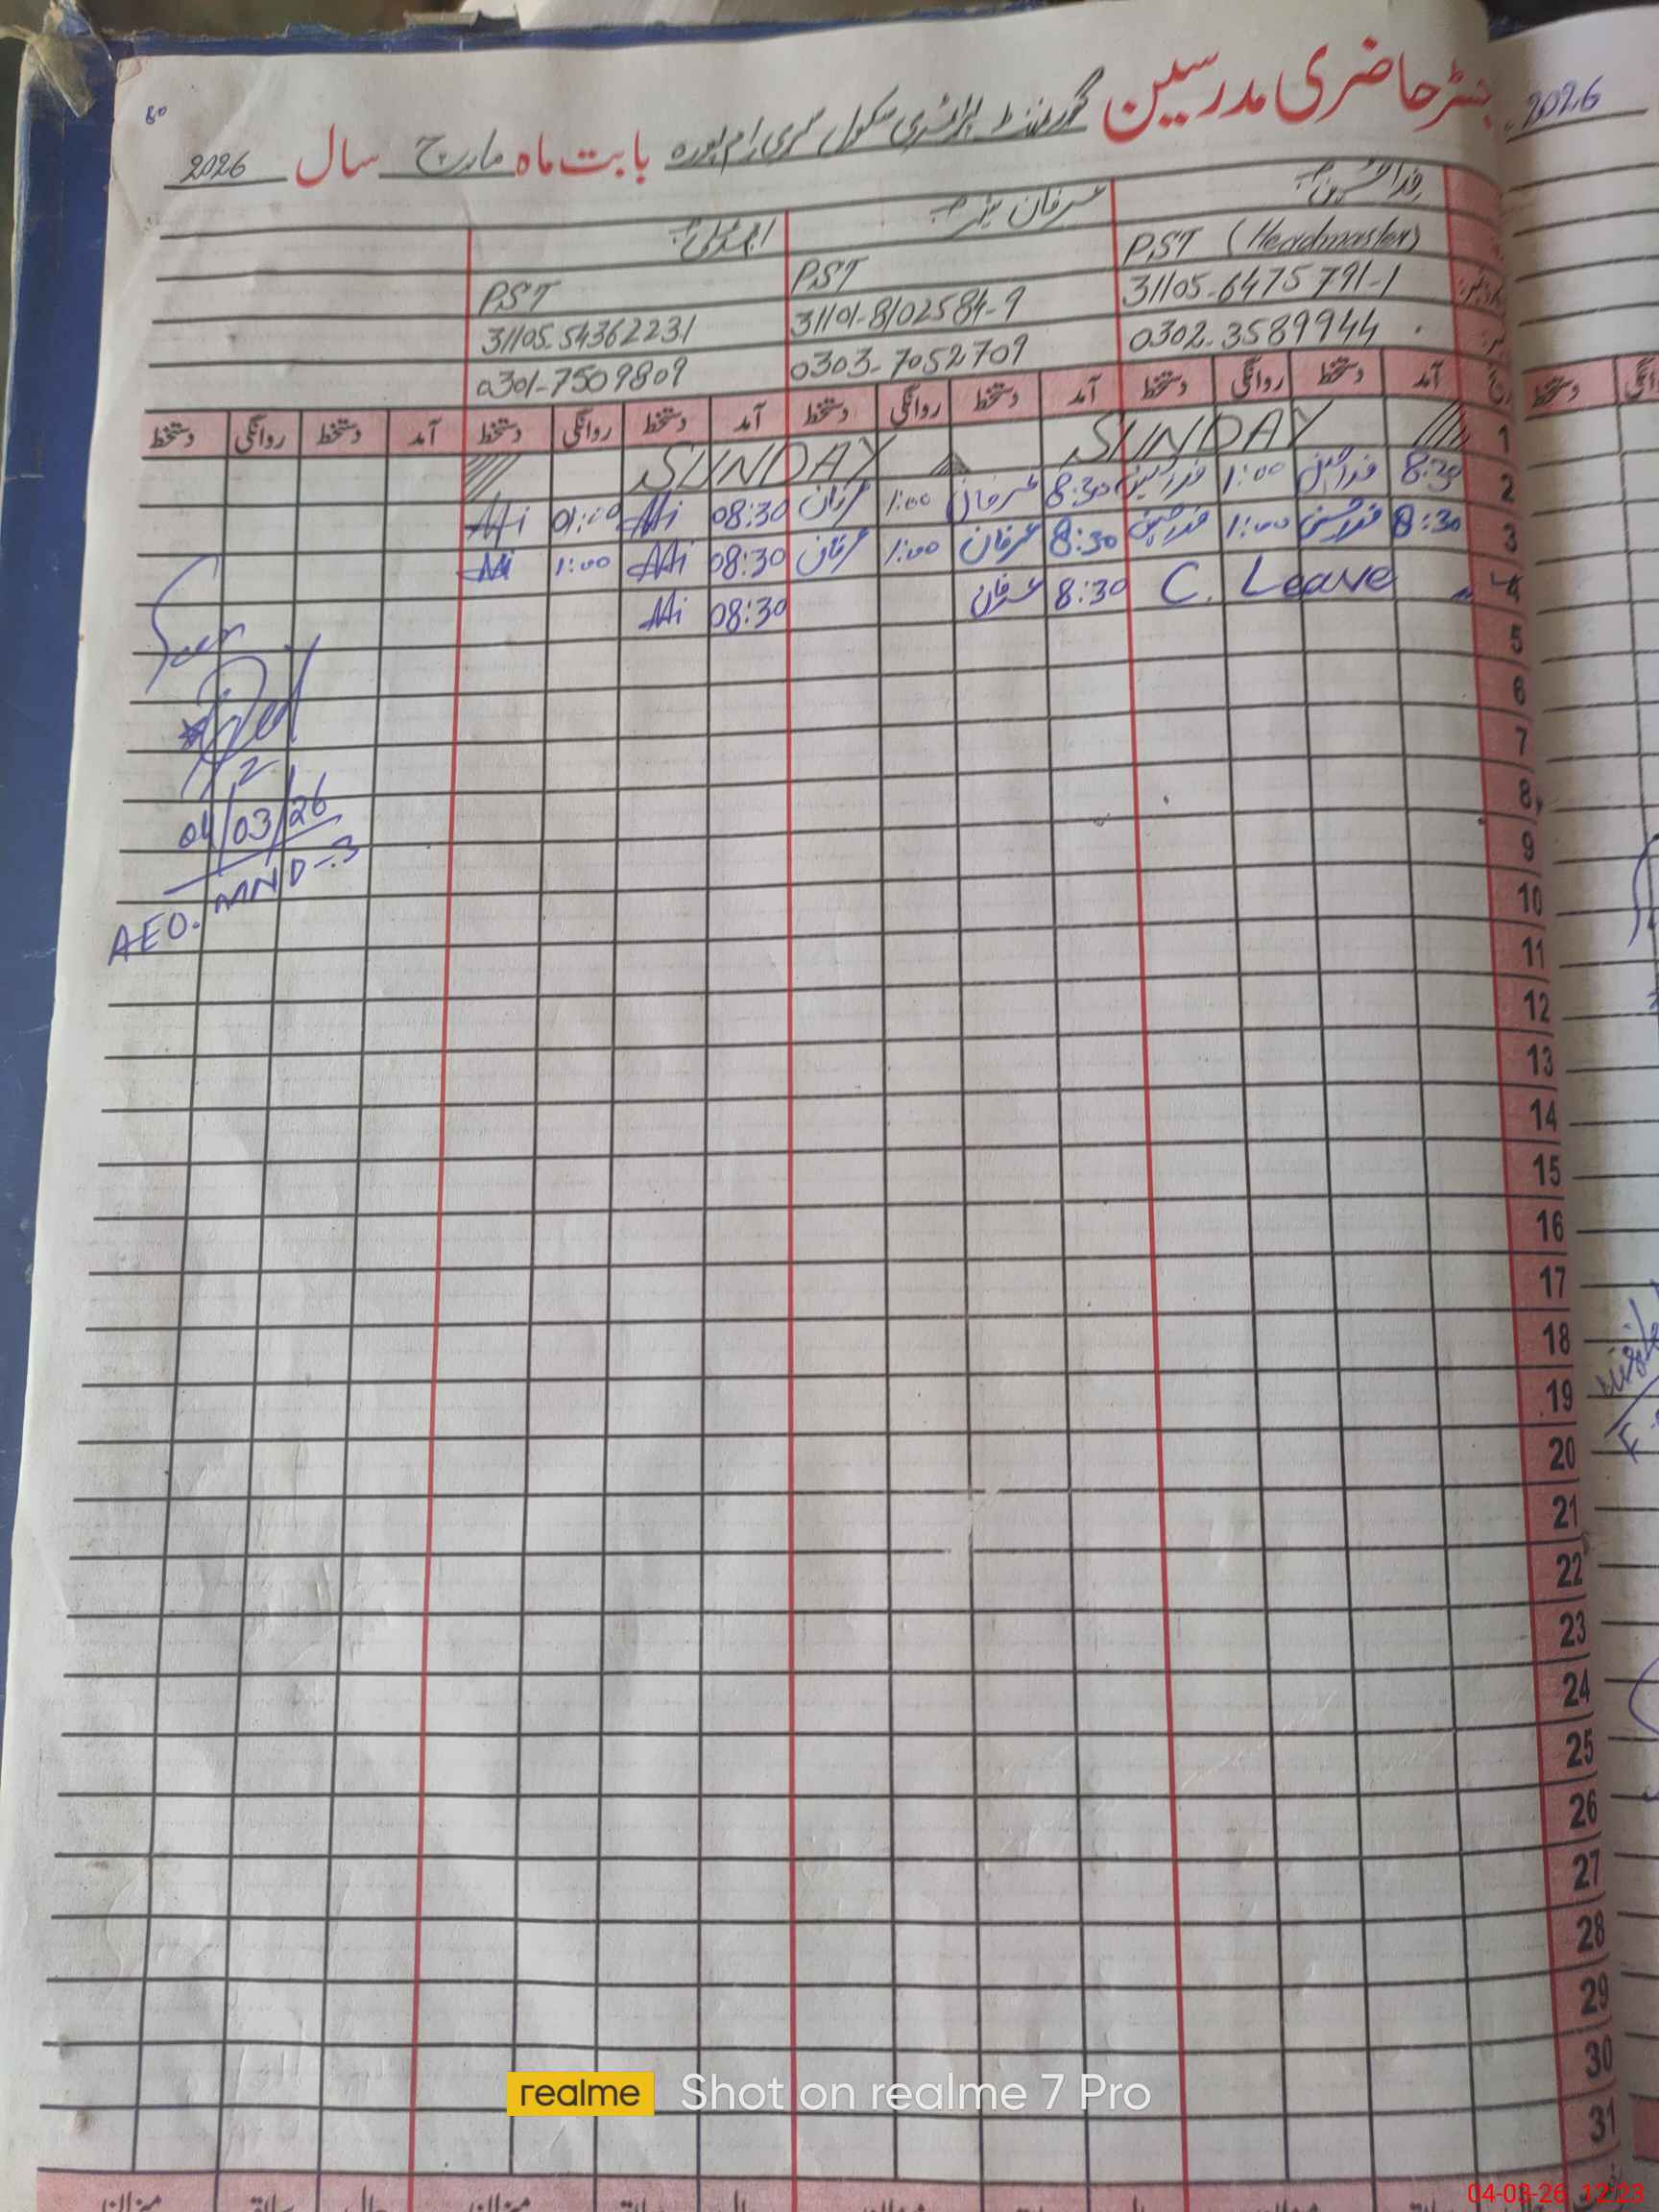 رجسٹر حاضری مدرسین گورنمنٹ پرائمری سکول سری رام پورہ بابت ماہ مارچ سال 2026
2026
80
فدا حسین عرفان امجد علی
PST (Headmaster) PST PST
31105-6475791-1 31101-8102584-9 31105-54362231
0302-3589944 0303-7052709 0301-7509809
آمد دستخط روانگی دستخط آمد دستخط روانگی دستخط آمد دستخط روانگی دستخط آمد دستخط روانگی دستخط
1 SUNDAY SUNDAY
2 8:30 فدا حسین 1:00 فدا حسین 8:30 عرفان 1:00 عرفان 08:30 01:00
3 8:30 فدا حسین 1:00 فدا حسین 8:30 عرفان 1:00 عرفان 08:30 1:00
4 C. Leave 8:30 عرفان 08:30
5
6
7
8
9
10
11
12
13
14
15
16
17
18
19
20
21
22
23
24
25
26
27
28
29
30
31
Seen
04/03/26
AEO. MND-3
دستخط
Visit
میزان سابقہ حال میزان سابقہ حال میزان سابقہ حال
realme Shot on realme 7 Pro
04-03-26 12:23